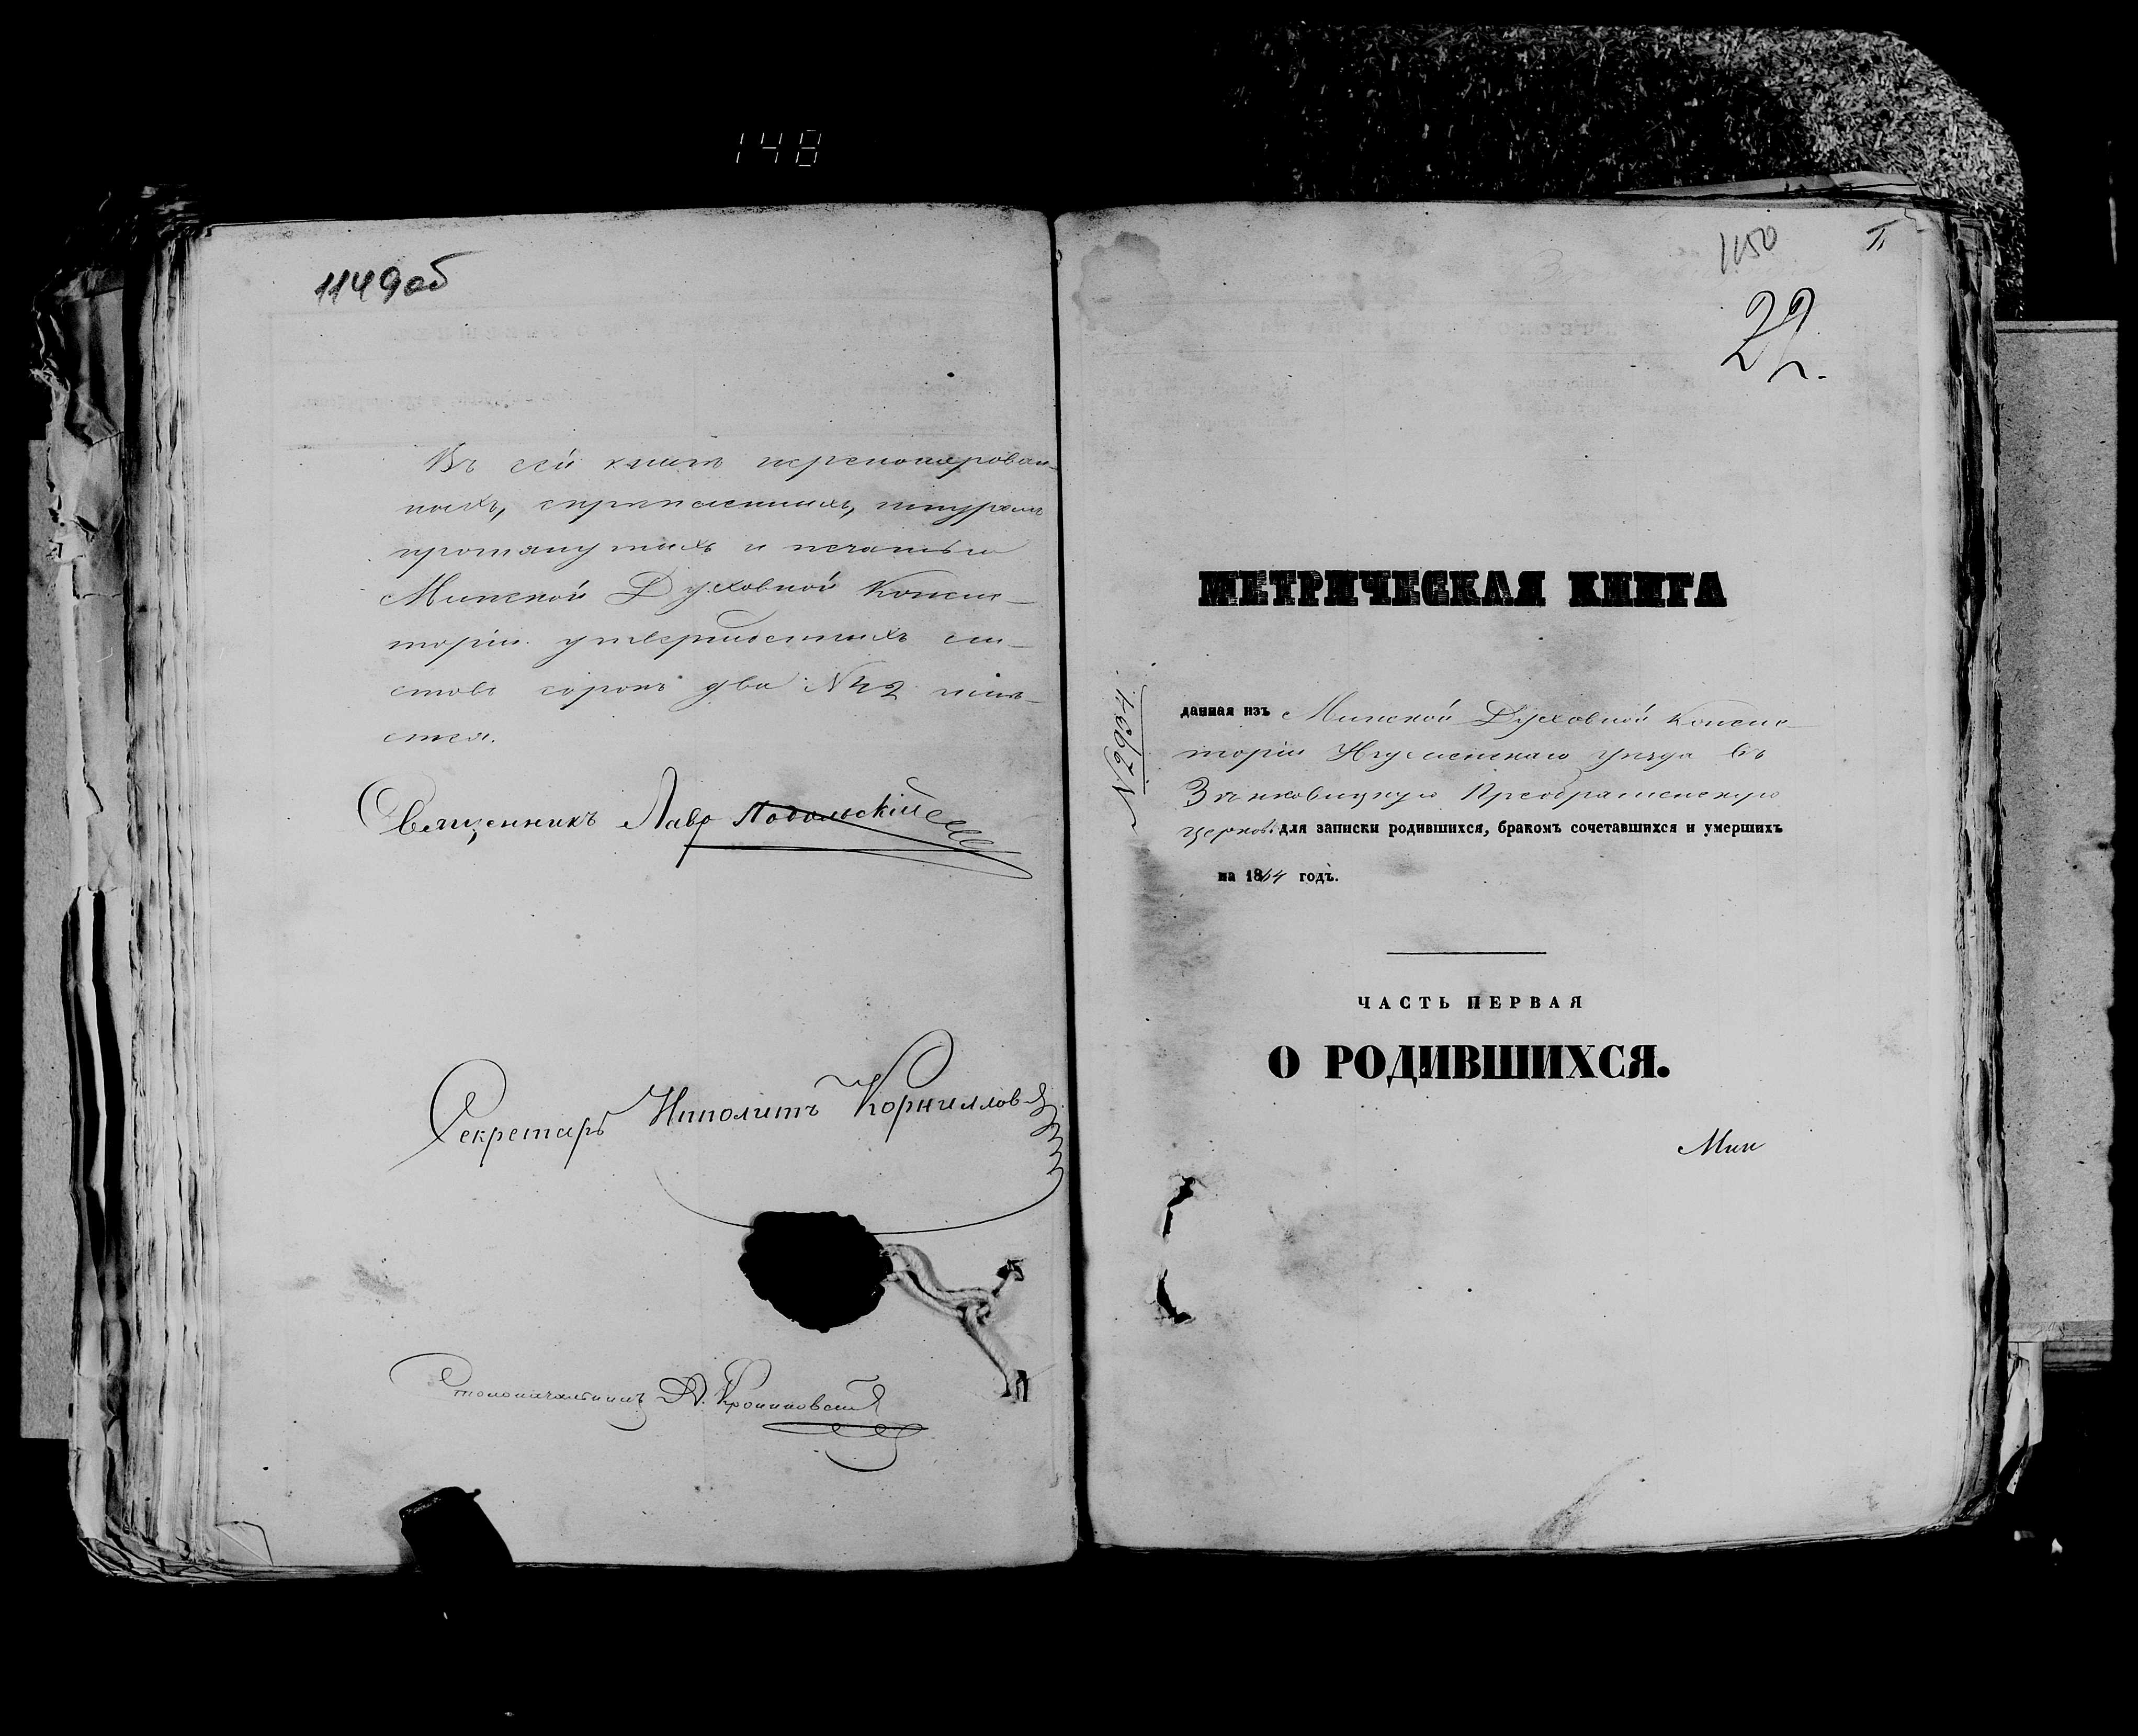 148
1149об
Въ сей книгѣ перенумерован-
ныхъ, скрѣпленныхъ, шнуромъ
протянутыхъ и печатью
Минской Духовной Конси-
торіи утвержденныхъ ли-
стовъ сорокъ два №42 имѣ-
ется.
Священникъ Лавр Подольскій
Секретарь Ипполитъ Корнилловъ
Столоначальникъ
1150
II
22.
МЕТРИЧЕСКАЯ КНИГА
№ 6294
данная изъ Минской Духовной Консис-
торіи Игуменскаго уѣзда въ
Преображенскую
церковь для записки родившихся, бракомъ сочетавшихся и умершихъ
на 1864 годъ.
ЧАСТЬ ПЕРВАЯ
О РОДИВШИХСЯ.
Мин